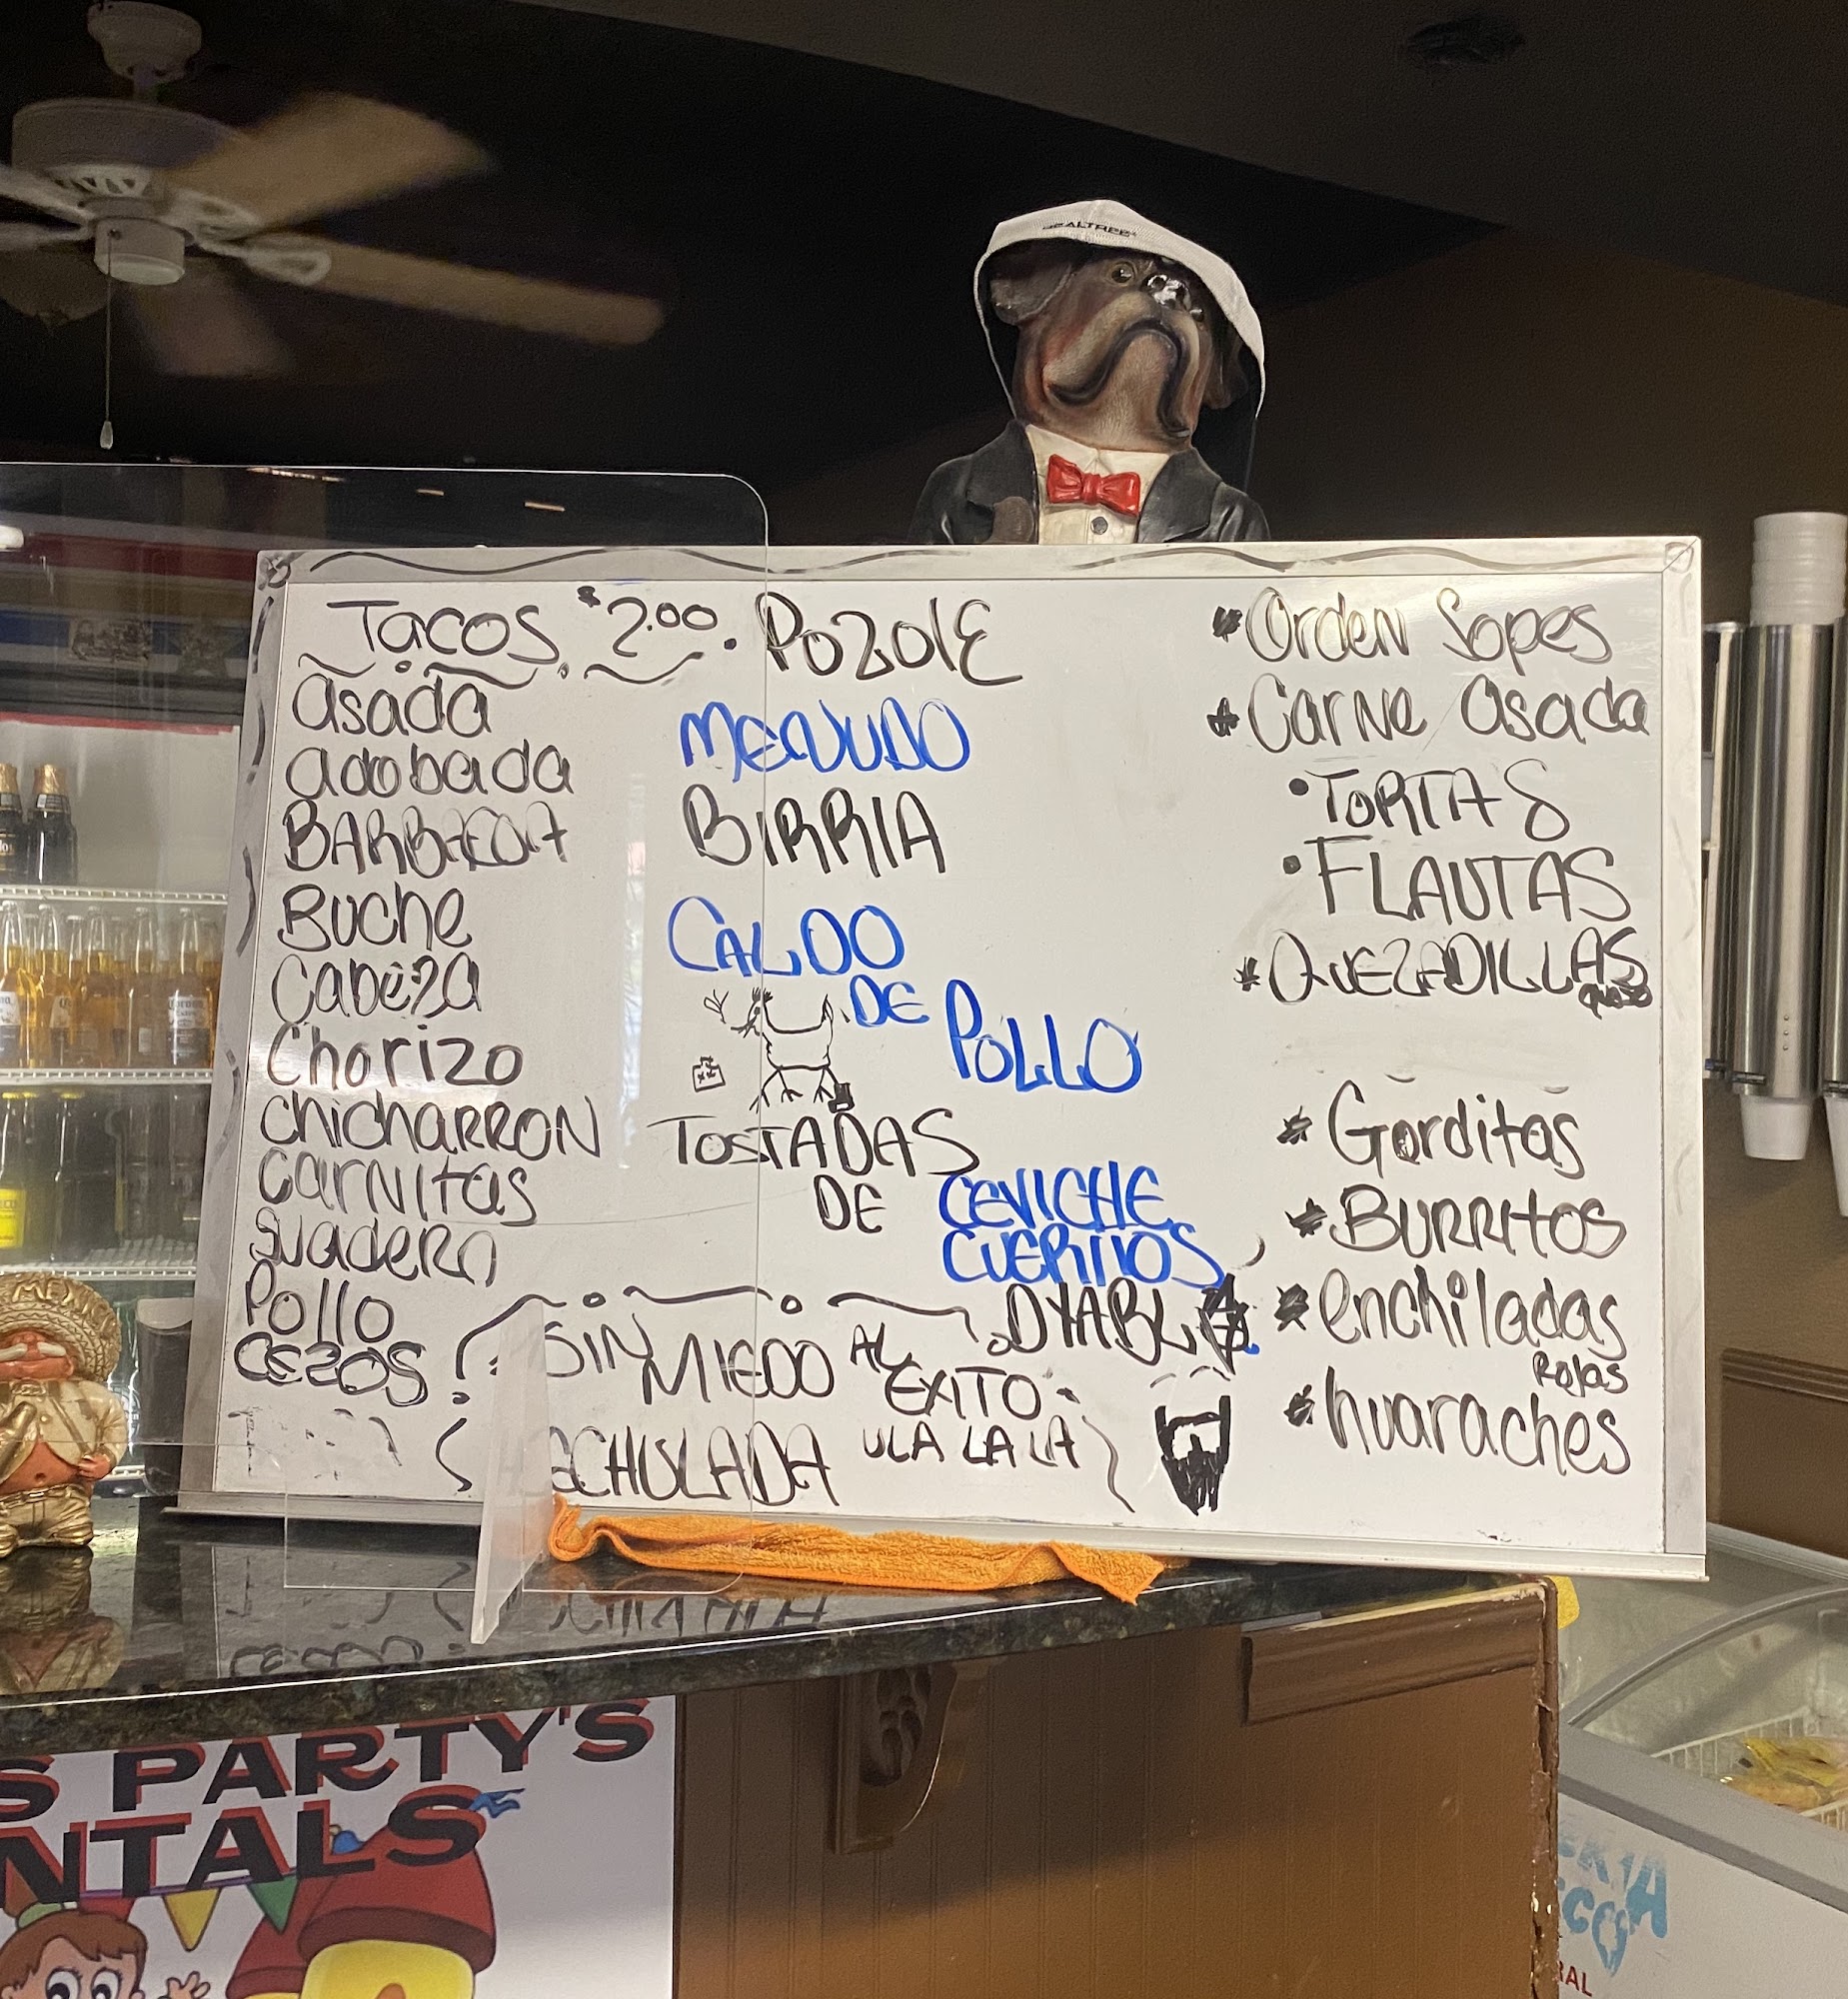 REALTREE
Tacos $2.00
asada
adobada
BARBACOA
Buche
Cabeza
Chorizo
chicharRON
CarNitas
suadero
Pollo
Cezos
POZOLE
MENUDO
BIRRIA
CALDO
DE
POLLO
TOSTADAS
DE
CEVICHE
CUERITOS
DYABLA
SIN MIEDO AL EXITO
ECHULADA ULA LA LA
*Orden Sopes
*CarNe asada
•TORTAS
•FLAUTAS
*QUEZADILLAS
queso
*Gorditas
*BURRITOS
*enchiladas
Rojas
*huaraches
S PARTY'S
NTALS